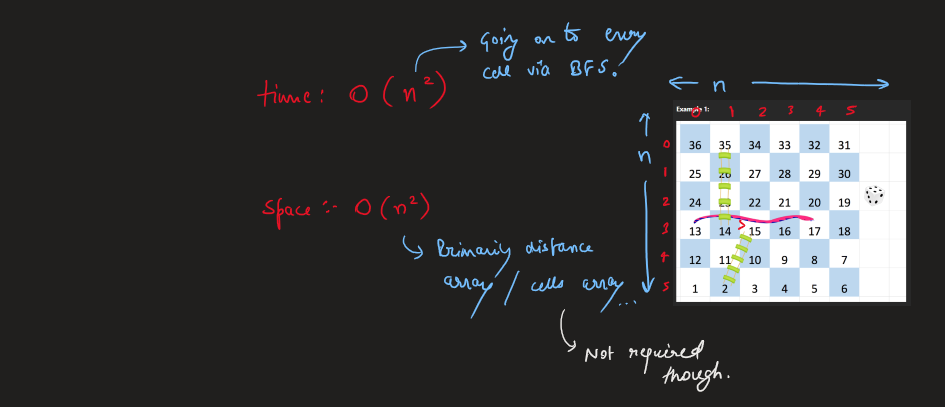 Going on to every
cell via BFS.
time: O(n²)
Space :- O(n²)
Primarily distance
array / cells array ...
Not required
though.
n
Example 1:
0 1 2 3 4 5
n
0 36 35 34 33 32 31
1 25 26 27 28 29 30
2 24 23 22 21 20 19
3 13 14 15 16 17 18
4 12 11 10 9 8 7
5 1 2 3 4 5 6